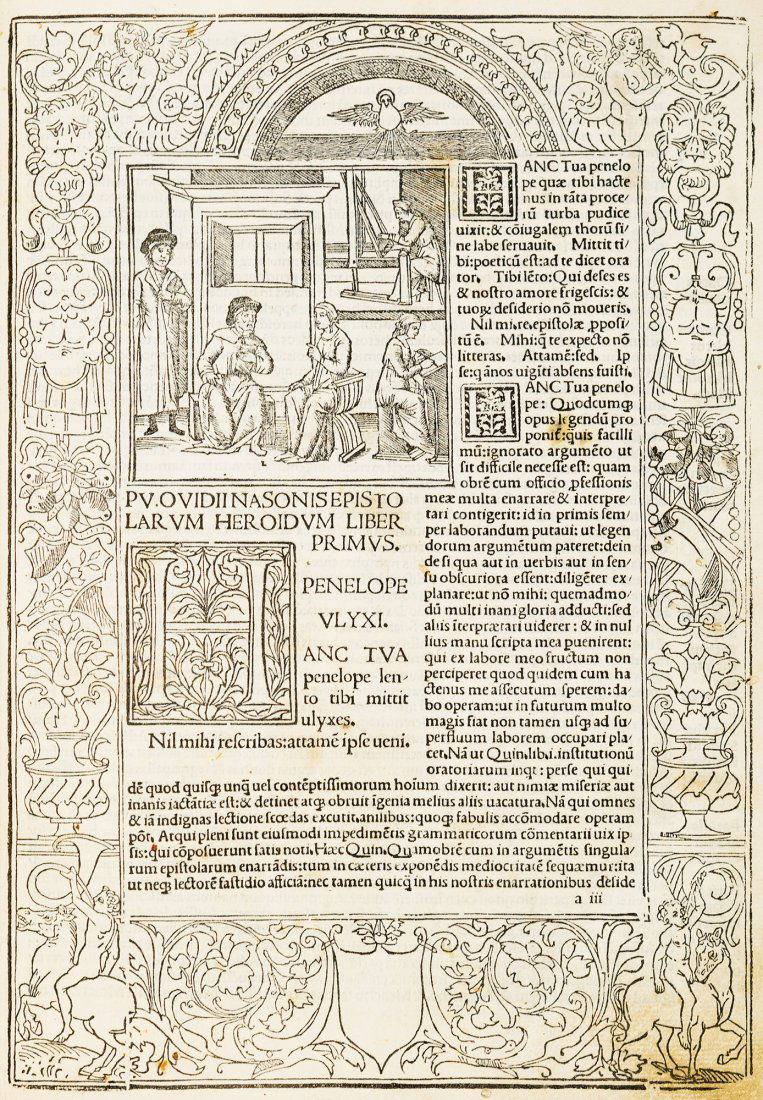 ANC Tua penelo
pe quæ tibi hacte
nus in tãta proce
iũ turba pudice
uixit:& cõiugalem thorũ si
ne labe seruauit. Mittit ti
bi:poeticũ est:ad te dicet ora
tor. Tibi lẽto: Qui deses es
& nostro amore frigescis: &
tuoqꝫ desiderio nõ moueris.
Nil mi.re.epistolæ ꝓposi
tũ ẽ. Mihi:q̃ te expecto nõ
litteras. Attamẽ:sed. Ip
se:q ãnos uigĩti absens fuisti.
ANC Tua penelo
pe: Quodcumqꝫ
opus legendũ pro
ponit:quis facilli
mũ:ignorato argumẽto ut
sit difficile necesse est: quam
obrẽ cum officio ꝓfessionis
meæ multa enarrare & interpre
tari contigerit: id in primis sem
per laborandum putaui: ut legen
dorum argumẽtum pateret: dein
de si qua aut in uerbis aut in sen
su obscuriora essent: diligẽter ex
planare: ut nõ mihi: quemadmo
dũ multi inani gloria adducti: sed
aliis ĩterprætari uiderer: & in nul
lius manu scripta mea puenirent:
qui ex labore meo fructum non
perciperet quod quidem cum ha
ctenus me assecutum sperem: da
bo operam: ut in futurum multo
magis fiat non tamen usqꝫ ad su
perfluum laborem occupari pla
cet. Nã ut Quin.li.i.institutionũ
oratoriarum inqt: perse qui qui
PV. OVIDII NASONIS EPISTO
LARVM HEROIDVM LIBER
PRIMVS.
PENELOPE
VLYXI.
H
ANC TVA
penelope len
to tibi mittit
ulyxes.
Nil mihi rescribas: attamẽ ipse ueni.
dẽ quod quisqꝫ unq̃ uel contẽptissimorum hoĩum dixerit: aut nimiæ miseriæ aut
inanis iactãtiæ est: & detinet atqꝫ obruit ĩgenia melius aliis uacatura. Nã qui omnes
& iã indignas lectione scœdas excutit. anilibus: quoqꝫ fabulis accõmodare operam
põt. Atqui pleni sunt eiusmodi impedimẽtis grammaticorum cõmentarii uix ip
sis: qui cõposuerunt satis noti. Hæc Quin. Quĩobrẽ cum in argumẽtis singula
rum epistolarum enarrãdis: tum in cæteris exponẽdis mediocritatẽ sequæmur: ita
ut neqꝫ lectorẽ fastidio afficiã: nec tamen quicq̃ in his nostris enarrationibus deside
a iii